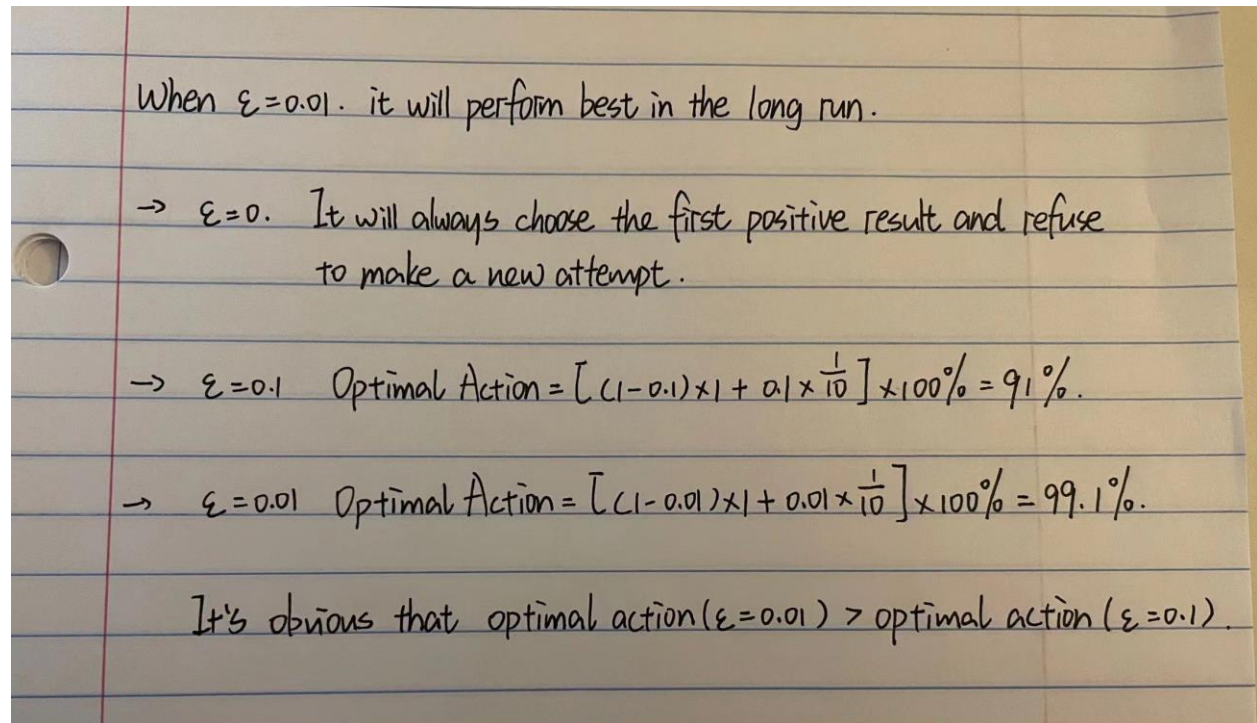 When ε=0.01. it will perform best in the long run.
→ ε=0. It will always choose the first positive result and refuse
to make a new attempt.
→ ε=0.1 Optimal Action = [(1-0.1)×1 + 0.1 × 1/10] ×100% = 91%.
→ ε=0.01 Optimal Action = [(1-0.01)×1 + 0.01 × 1/10] ×100% = 99.1%.
It's obvious that optimal action (ε=0.01) > optimal action (ε=0.1).